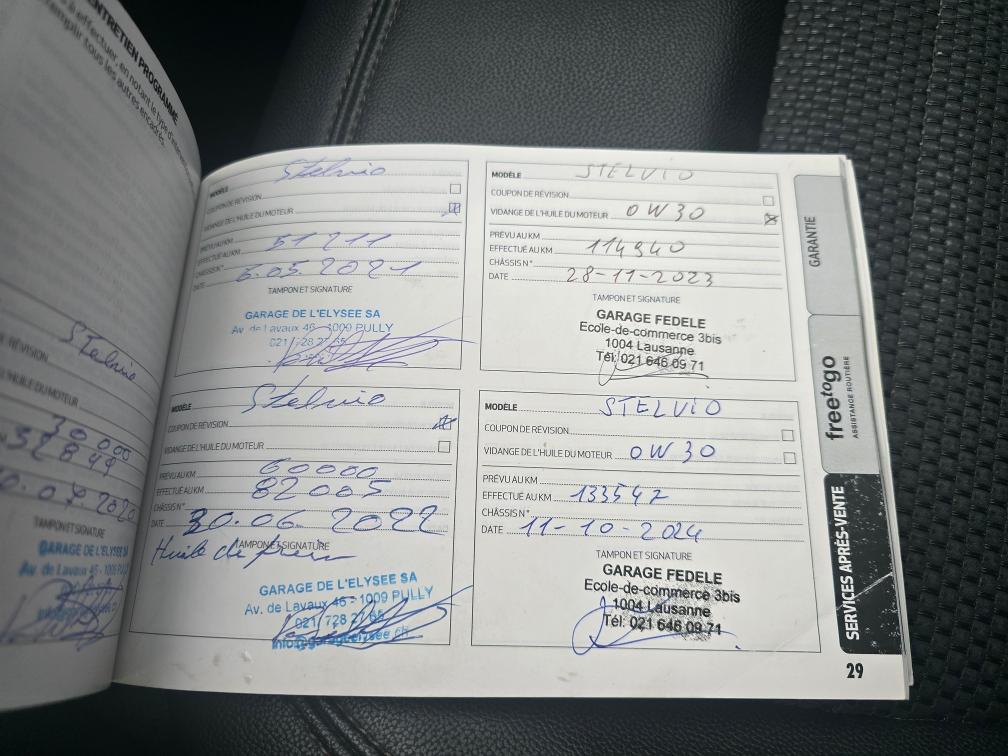 ENTRETIEN PROGRAMMÉ
à effectuer, en notant le type d'
remplir tous les autres encadrés.
E RÉVISION
Stelvio
L'HUILE DU MOTEUR
30000
TAMPON ET SIGNATURE
GARAGE DE L'ELYSEE SA
Av. de Lavaux 46 - 1009 PULLY
MODÈLE Stelvio
COUPON DE RÉVISION
VIDANGE DE L'HUILE DU MOTEUR
PRÉVU AU KM
EFFECTUÉ AU KM 51211
CHÂSSIS N°
DATE 6.05.2021
TAMPON ET SIGNATURE
GARAGE DE L'ELYSEE SA
Av. de Lavaux 46 - 1009 PULLY
021 728 27 65
MODÈLE Stelvio
COUPON DE RÉVISION
VIDANGE DE L'HUILE DU MOTEUR
PRÉVU AU KM 60000
EFFECTUÉ AU KM 82005
CHÂSSIS N°
DATE 30.06.2022
TAMPON ET SIGNATURE
Huile de frein
GARAGE DE L'ELYSEE SA
Av. de Lavaux 46 - 1009 PULLY
021 728 27 65
info@garagelysee.ch
MODÈLE STELVIO
COUPON DE RÉVISION
VIDANGE DE L'HUILE DU MOTEUR 0W30
PRÉVU AU KM
EFFECTUÉ AU KM 114940
CHÂSSIS N°
DATE 28-11-2023
TAMPON ET SIGNATURE
GARAGE FEDELE
Ecole-de-commerce 3bis
1004 Lausanne
Tél: 021 646 09 71
MODÈLE STELVIO
COUPON DE RÉVISION
VIDANGE DE L'HUILE DU MOTEUR 0W30
PRÉVU AU KM
EFFECTUÉ AU KM 133542
CHÂSSIS N°
DATE 11-10-2024
TAMPON ET SIGNATURE
GARAGE FEDELE
Ecole-de-commerce 3bis
1004 Lausanne
Tél: 021 646 09 71
GARANTIE
freetogo
ASSISTANCE ROUTIÈRE
SERVICES APRÈS-VENTE
29